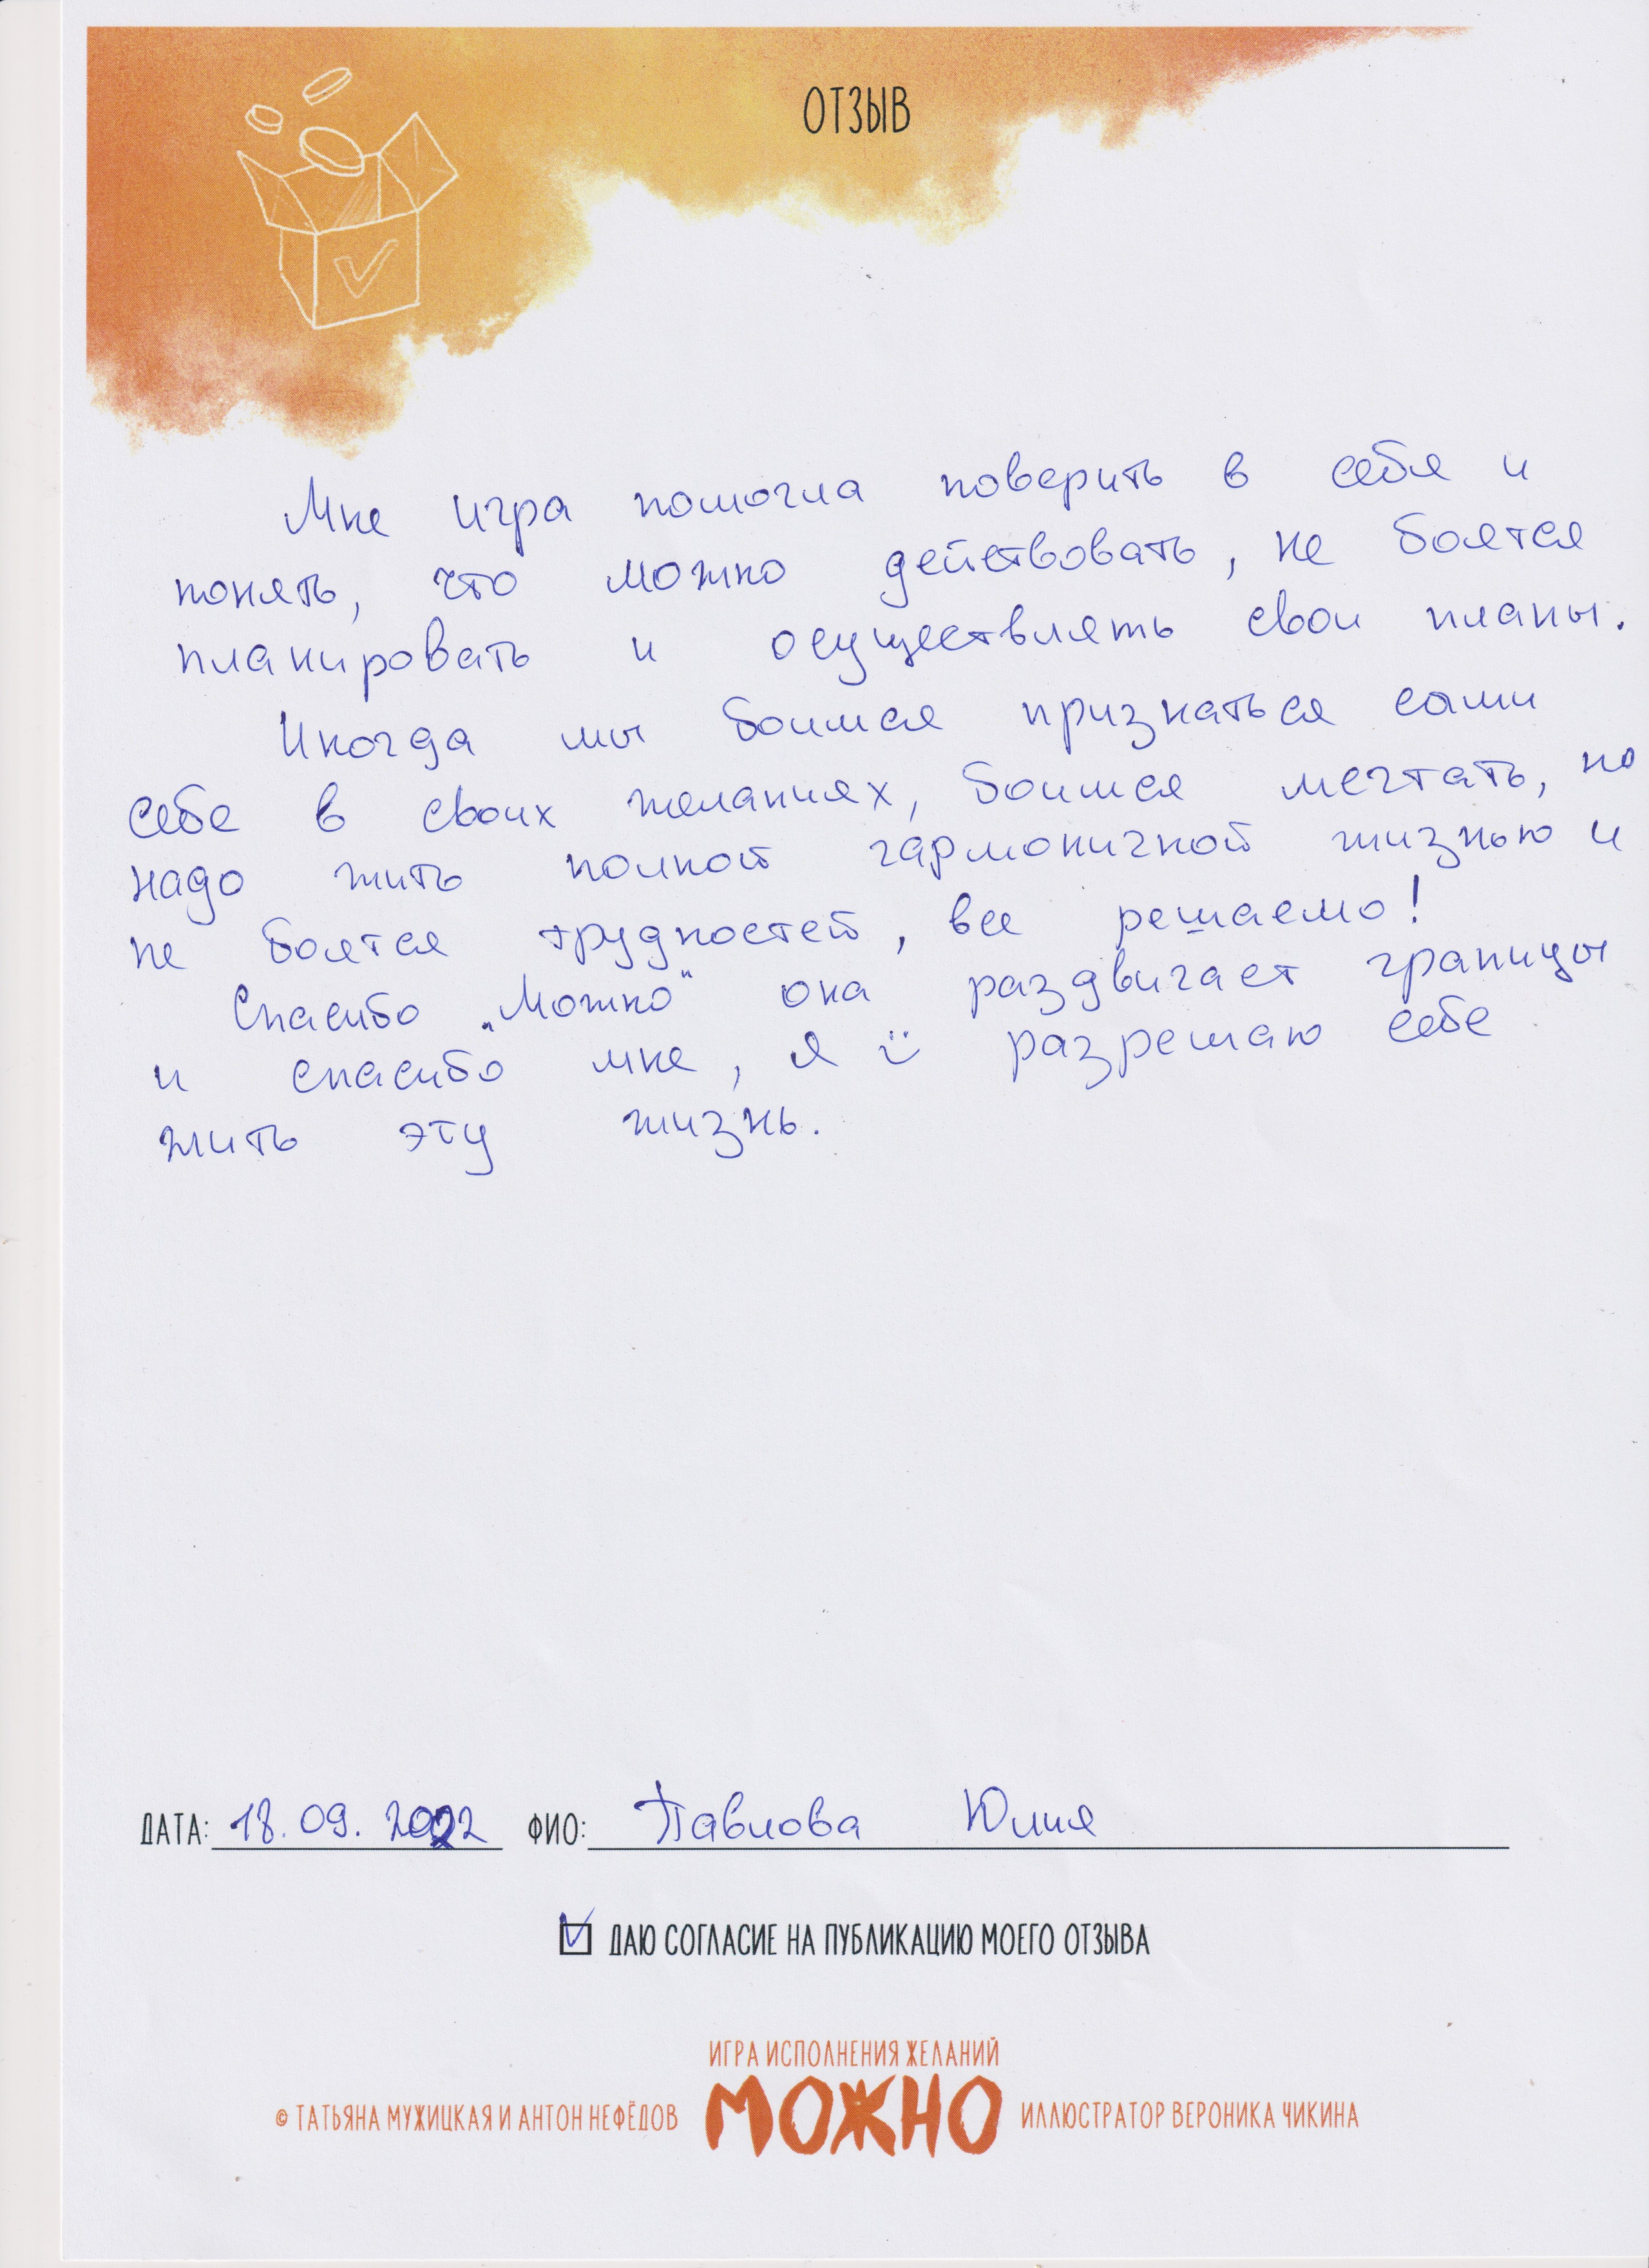 ОТЗЫВ
Мне игра помогла поверить в себя и
понять, что можно действовать, не боятся
планировать и осуществлять свои планы.
Иногда мы боимся признаться сами
себе в своих желаниях, боимся мечтать, но
надо жить полной гармоничной жизнью и
не боятся трудностей, все решаемо!
Спасибо „Можно" она раздвигает границы
и спасибо мне, я разрешаю себе
жить эту жизнь.
ДАТА: 18.09.2022 ФИО: Павлова Юлия
ДАЮ СОГЛАСИЕ НА ПУБЛИКАЦИЮ МОЕГО ОТЗЫВА
ИГРА ИСПОЛНЕНИЯ ЖЕЛАНИЙ
© ТАТЬЯНА МУЖИЦКАЯ И АНТОН НЕФЁДОВ МОЖНО ИЛЛЮСТРАТОР ВЕРОНИКА ЧИКИНА